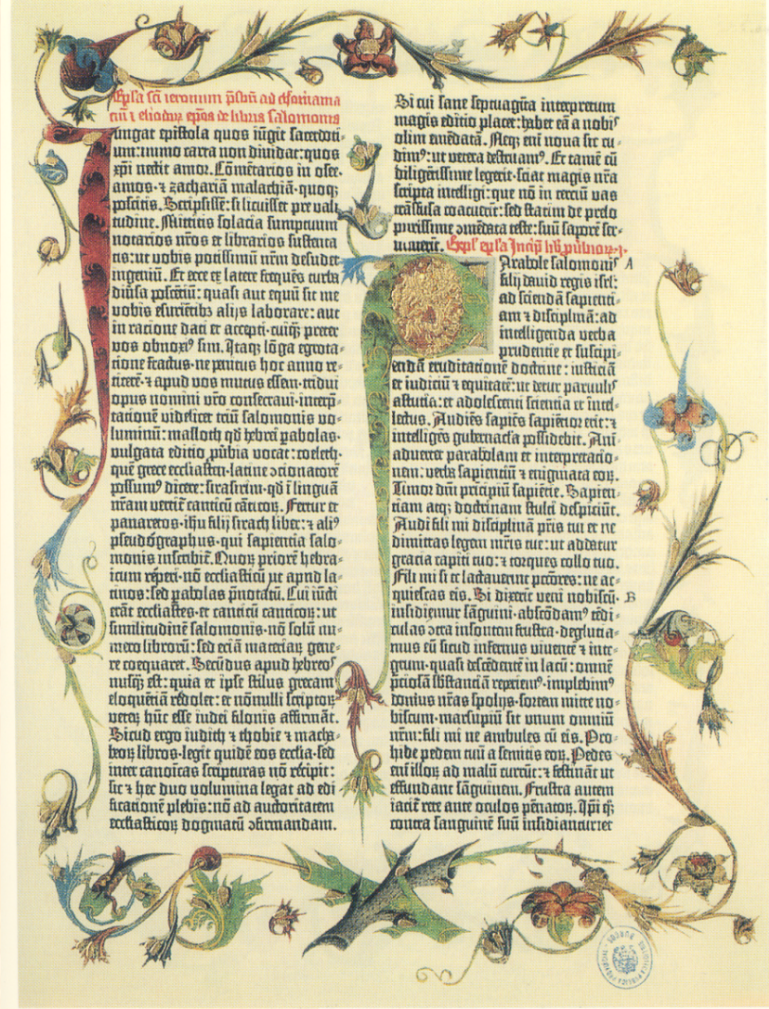 Epl̄a sc̄i ieronimi p̄sbr̄i ad cromacium
et eliodorum ep̄os de libris salomonis
Iungat epistola quos iūgit sacerdoti-
um: immo carta non diuidat: quos
xp̄i nectit amor. Cōmētarios in osee-
amos· ⁊ zachariā malachiā· quoqꝫ
poscitis. Scripsissē: si licuisset pre vali-
tudine. Mittitis solacia sumptuum·
notarios nr̄os et librarios sustenta-
tis: ut vobis potissimū nr̄m desudet
ingeniū. Et ecce ex latere freqūēs turba
diūsa poscētiū: quasi aut equū sit me
vobis esuriētibꝫ alijs laborare: aut
in ratione dati et accepti· cuiqꝫ preter
vos obnoxiꝰ sim. Itaqꝫ lōga egrota-
tione fractus· ne penitus hoc anno re-
ticerē· ⁊ apud vos mutus essem· tridui
opus nomini vr̄o consecraui· interp̄-
tationē videlicet triū salomonis vo-
luminū: masloth qd̄ hebrei ꝑabolas·
vulgata editio ꝓūbia vocat: coeleth·
quē grece ecclīasten· latine ɔcionatorē
possumꝰ dicere: sirasirim· qd̄ ī linguā
nr̄am vertit̄ canticū cāticoꝝ. Fertur et
panaretos· ihū filij sirach liber: ⁊ aliꝰ
pseudographus· qui sapientia salo-
monis inscribit̄. Quoꝝ priorē hebra-
icum reperi· nō ecclīasticū ut apud la-
tinos: sed ꝑabolas p̄notatū. Cui iūcti
erāt ecclīastes· et canticū canticoꝝ: ut
similitudinē salomonis· nō solū nu-
mero librorū: sed eciā materiaꝝ gene-
re coequaret. Secūdus apud hebreos
nusꝗ est: quia et ipse stilus grecam
eloquētiā redolet: et nōnulli scriptoꝝ
veteꝝ hūc esse iudei filonis affirmāt.
Sicud ergo iudith ⁊ thobie ⁊ macha-
beoꝝ libros· legit quidē eos ecclīa· sed
inter canoīcas scripturas nō recipit:
sic ⁊ hec duo volumina legat ad edi-
ficationē plebis: nō ad auctoritatem
ecclīasticoꝝ dogmatū ɔfirmandam.
Si cui sane septuagīta interpretum
magis editio placet: habet eā a nobis
olim emēdatā. Neqꝫ em̄ noua sic cu-
dimꝰ: ut vetera destruamꝰ. Et tamē cū
diligētissime legerit· sciat magis nr̄a
scripta intelligi: que nō in terciū vas
trāsfusa coacuerit: sed statim de prelo
purissime ɔmēdata teste: suū saporē ser-
uauerit.
Parabole salomonis A
filij dauid regis isrl̄:
ad sciendā sapienti-
am ⁊ disciplinā: ad
intelligenda verba
prudentie et suscipi-
endā eruditationē doctrine: iusticiā
et iudiciū ⁊ equitatē: ut detur paruulis
astucia: et adolescenti sciencia et intel-
lectus. Audiēs sapiēs sapientior erit: ⁊
intelligēs gubernacla possidebit. Ani-
aduertet parabolam et interpretacio-
nem: verba sapientiū ⁊ enigmata eoꝝ.
Timor dn̄i principiū sapiētie. Sapien-
tiam atqꝫ doctrinam stulti despiciūt.
Audi fili mi disciplinā pr̄is tui et ne
dimittas legem mr̄is tue: ut addatur
gracia capiti tuo: ⁊ torques collo tuo.
Fili mi si te lactauerint pctōres: ne ac-
quiescas eis. Si dixerīt veni nobiscū· B
insidiemur sāguini· abscōdamꝰ tēdi-
culas ɔtra insontem frustra· deglucia-
mus eū sicud infernus viuentē ⁊ inte-
grum· quasi descēdentē in lacū: omnē
p̄ciosā sb̄stantiā reperiemꝰ· implebimꝰ
domus nr̄as spolijs· sortem mitte no-
biscum· marsupiū sit vnum omniū
nr̄m: fili mi ne ambules cū eis. Pro-
hibe pedem tuū a semitis eoꝝ. Pedes
em̄ illoꝝ ad malū currūt: ⁊ festināt ut
effundant sāguinem. Frustra autem
iacit̄ rete ante oculos pēnatoꝝ. Ip̄i ꝗꝫ
contra sanguinē suū insidiantur: et